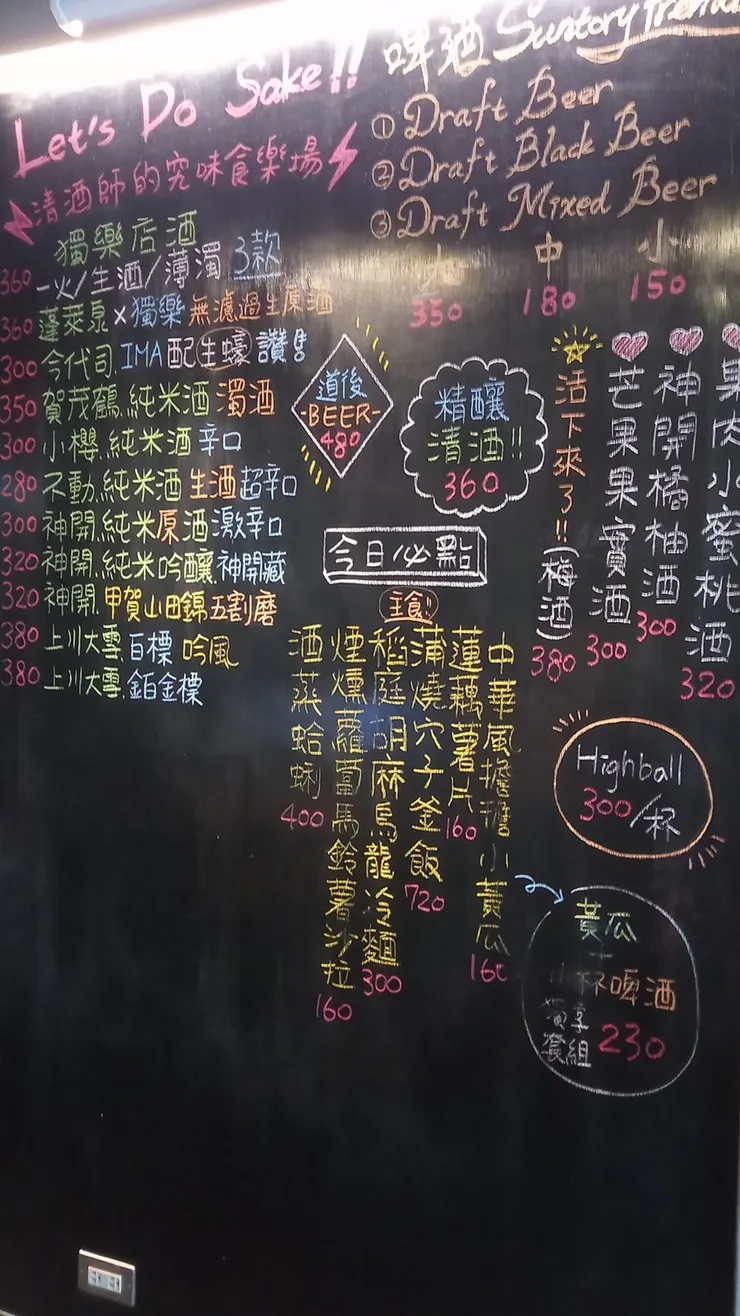 Let's Do Sake!!
清酒師的究味食樂場
獨樂店酒
360 一火/生酒/薄濁 3款
360 蓬萊泉×獨樂 無濾過生原酒
300 今代司.IMA配生蠔 讚!!
350 賀茂鶴.純米酒 濁酒
300 小櫻.純米酒 辛口
280 不動.純米酒 生酒 超辛口
300 神開.純米原酒 激辛口
320 神開.純米吟釀 神開藏
320 神開.甲賀山田錦五割磨
380 上川大雪.百標 吟風
380 上川大雪.鉑金標
啤酒 Suntory
① Draft Beer
② Draft Black Beer
③ Draft Mixed Beer
大 中 小
350 180 150
道後
-BEER-
480
精釀
清酒!!
360
活下來了!!(梅酒)
380
芒果果實酒
300
神開橘柚酒
300
果肉小蜜桃酒
320
今日必點
主食!!
中華風擔擔小黃瓜
160
蓮藕薯片
160
蒲燒穴子釜飯
720
稻庭胡麻烏龍冷麵
300
煙燻蘿蔔馬鈴薯沙拉
160
酒蒸蛤蜊
400
Highball
300/杯
黃瓜
+
小杯啤酒
獨享
套組 230